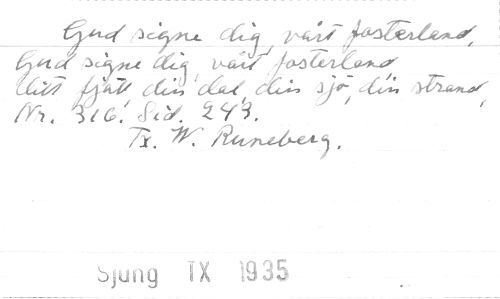 Gud signe dig, vårt fosterland,
Gud signe dig, vårt fosterland
ditt fjäll, din dal, din sjö, din strand,
Nr. 316. Sid. 243.
Tx. W. Runeberg.
Sjung TX 1935